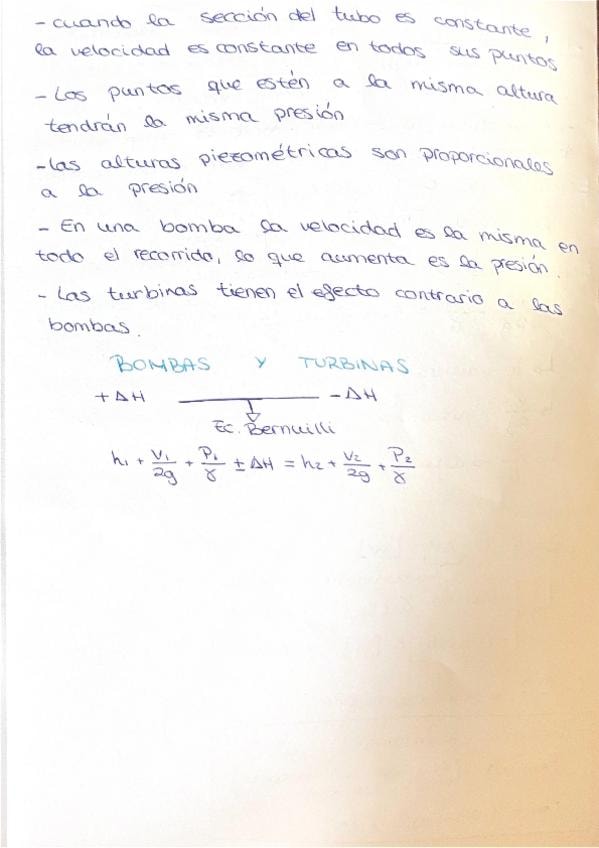 - cuando la sección del tubo es constante,
la velocidad es constante en todos sus puntos
- Los puntos que estén a la misma altura
tendrán la misma presión
- Las alturas piezométricas son proporcionales
a la presión
- En una bomba la velocidad es la misma en
todo el recorrido, lo que aumenta es la presión.
- Las turbinas tienen el efecto contrario a las
bombas.
BOMBAS Y TURBINAS
+ΔH -ΔH
Ec. Bernuilli
h₁ + V₁/2g + P₁/γ ± ΔH = h₂ + V₂/2g + P₂/γ